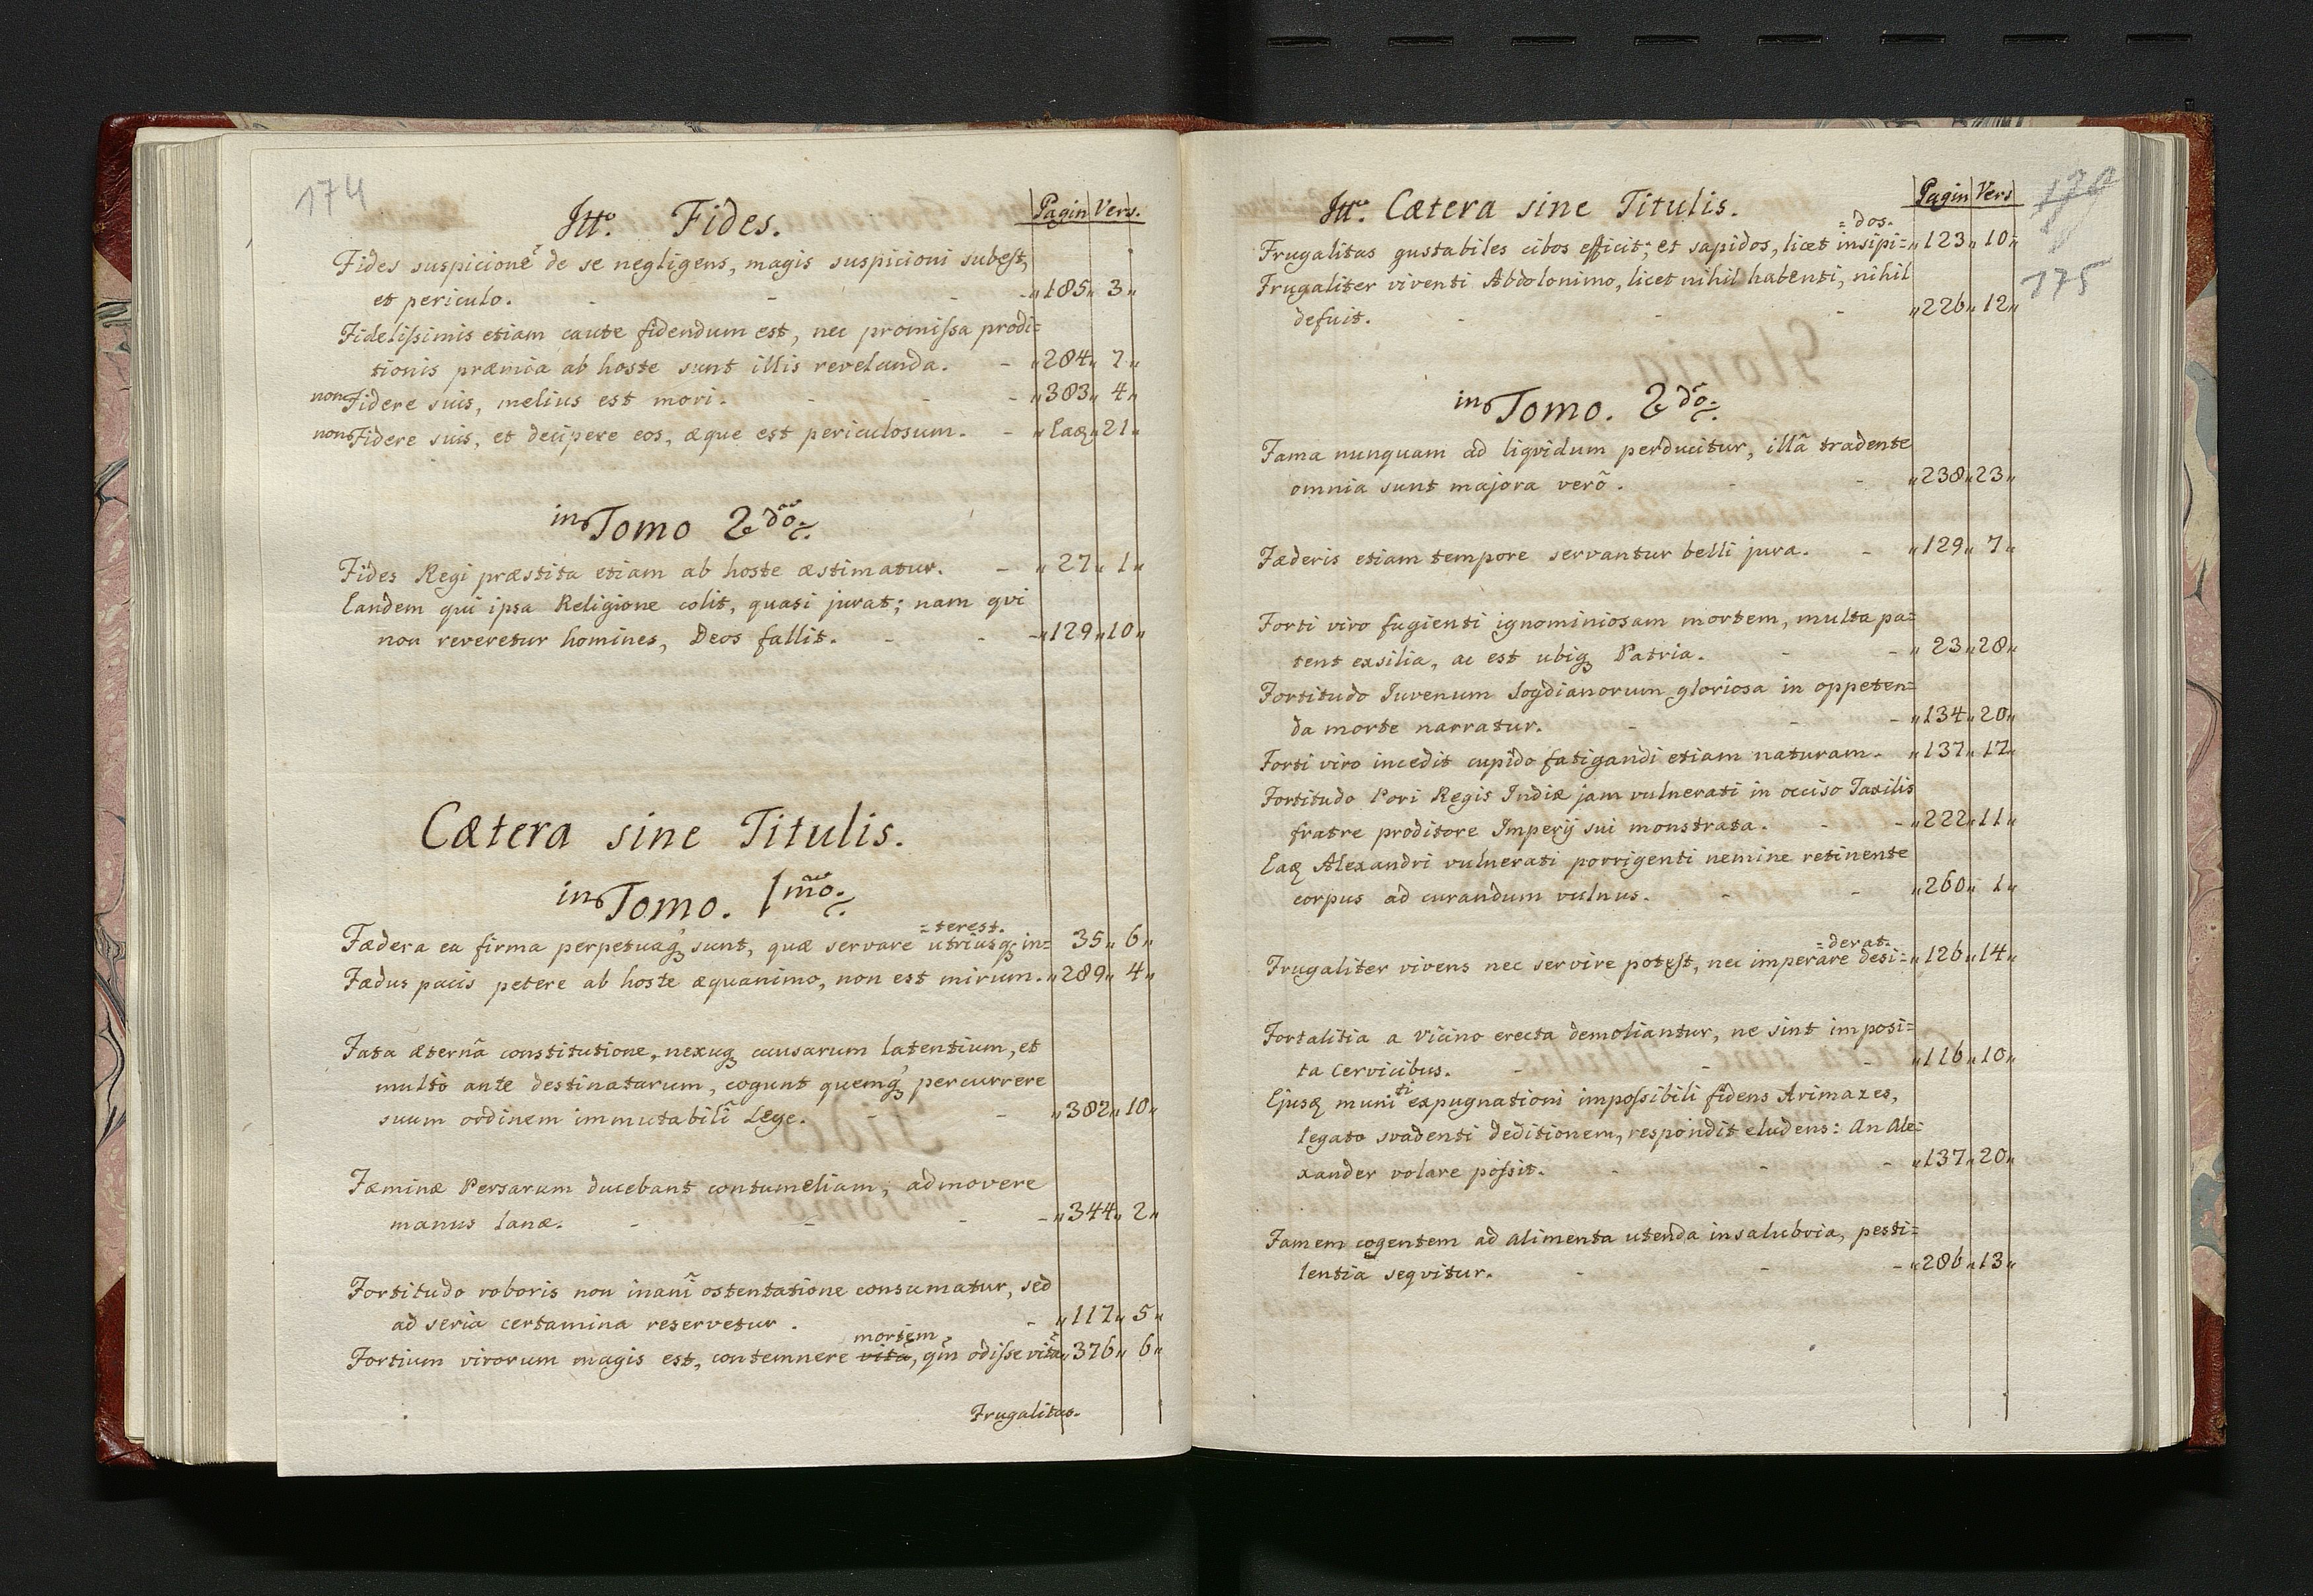 174
Itt.º Fides.
Pagin Vers.
Fides suspicionẽ de se negligens, magis suspicioni subest,
et periculo. - - - - „185„ 3„
Fidelissimis etiam caute fidendum est, nec promissa prodi=
tionis præmia ab hoste sunt illis revelanda. - „284„ 7„
non Fidere suis, melius est mori. - - - „383„ 4„
non Fidere suis, et decipere eos, æque est periculosum. - „Eaq„ 21„
in Tomo 2do.
Fides Regi præstita etiam ab hoste æstimatur. - „27„ 1„
Eandem qui ipsa Religione colit, quasi jurat; nam qvi
non reveretur homines, Deos fallit. - - - „129„ 10„
Cætera sine Titulis.
in Tomo. 1mo.
=terest.
Fædera ea firma perpetuaq̃ sunt, quæ servare utriusq; in= 35„ 6„
Fædus pacis petere ab hoste æquanimo, non est mirum. „289„ 4„
Fata æternâ constitutione, nexuq; causarum latentium, et
multò ante destinatarum, cogunt quemq̃ percurrere
suum ordinem immutabilî Lege. - - „382„ 10„
Fæminæ Persarum ducebant contumeliam, admovere
manus lanæ. - - - - „344„ 2„
Fortitudo roboris non inanî ostentatione consumatur, sed
ad seria certamina reservetur. - „117„ 5„
mortem
Fortium virorum magis est, contemnere vitã, qm̃ odisse vitã „376„ 6„
Frugalitas.
Itt.º Cætera sine Titulis.
Pagin Vers
175
=dos.
Frugalitas gustabiles cibos efficit; et sapidos, licet insipi= „123„ 10„
Frugaliter viventi Abdolonimo, licet nihil habenti, nihil
defuit. - - - „226„ 12„
in Tomo. 2do.
Fama nunquam ad liqvidum perducitur, illâ tradente
omnia sunt majora verô. - - „238„ 23„
Fæderis etiam tempore servantur belli jura. - „129„ 7„
Forti viro fugienti ignominiosam mortem, multa pa=
tent exsilia, ac est ubiq; Patria. - - „23„ 28„
Fortitudo Iuvenum Sogdianorum gloriosa in oppeten=
da morte narratur. - - - „134„ 20„
Forti viro incedit cupido fatigandi etiam naturam. - „137„ 17„
Fortitudo Pori Regis Indiæ jam vulnerati in occiso Taxilis
fratre proditore Imperij sui monstrata. - - „222„ 11„
Eaq Alexandri vulnerati porrigenti nemine retinente
corpus ad curandum vulnus. - - „260„ 1„
=derat.
Frugaliter vivens nec servire potest, nec imperare desi= „126„ 14„
Fortalitia a Vicino erecta demoliantur, ne sint imposi=
ta Cervicibus. - - - „116„ 10„
ti
Ejusq muni expugnationi impossibili fidens Arimazes,
legato svadenti deditionem, respondit eludens: An Ale=
xander volare possit. - - - „137„ 20„
Famem cogentem ad alimenta utenda insalubria, pesti=
lentia seqvitur. - - - „286„ 13„